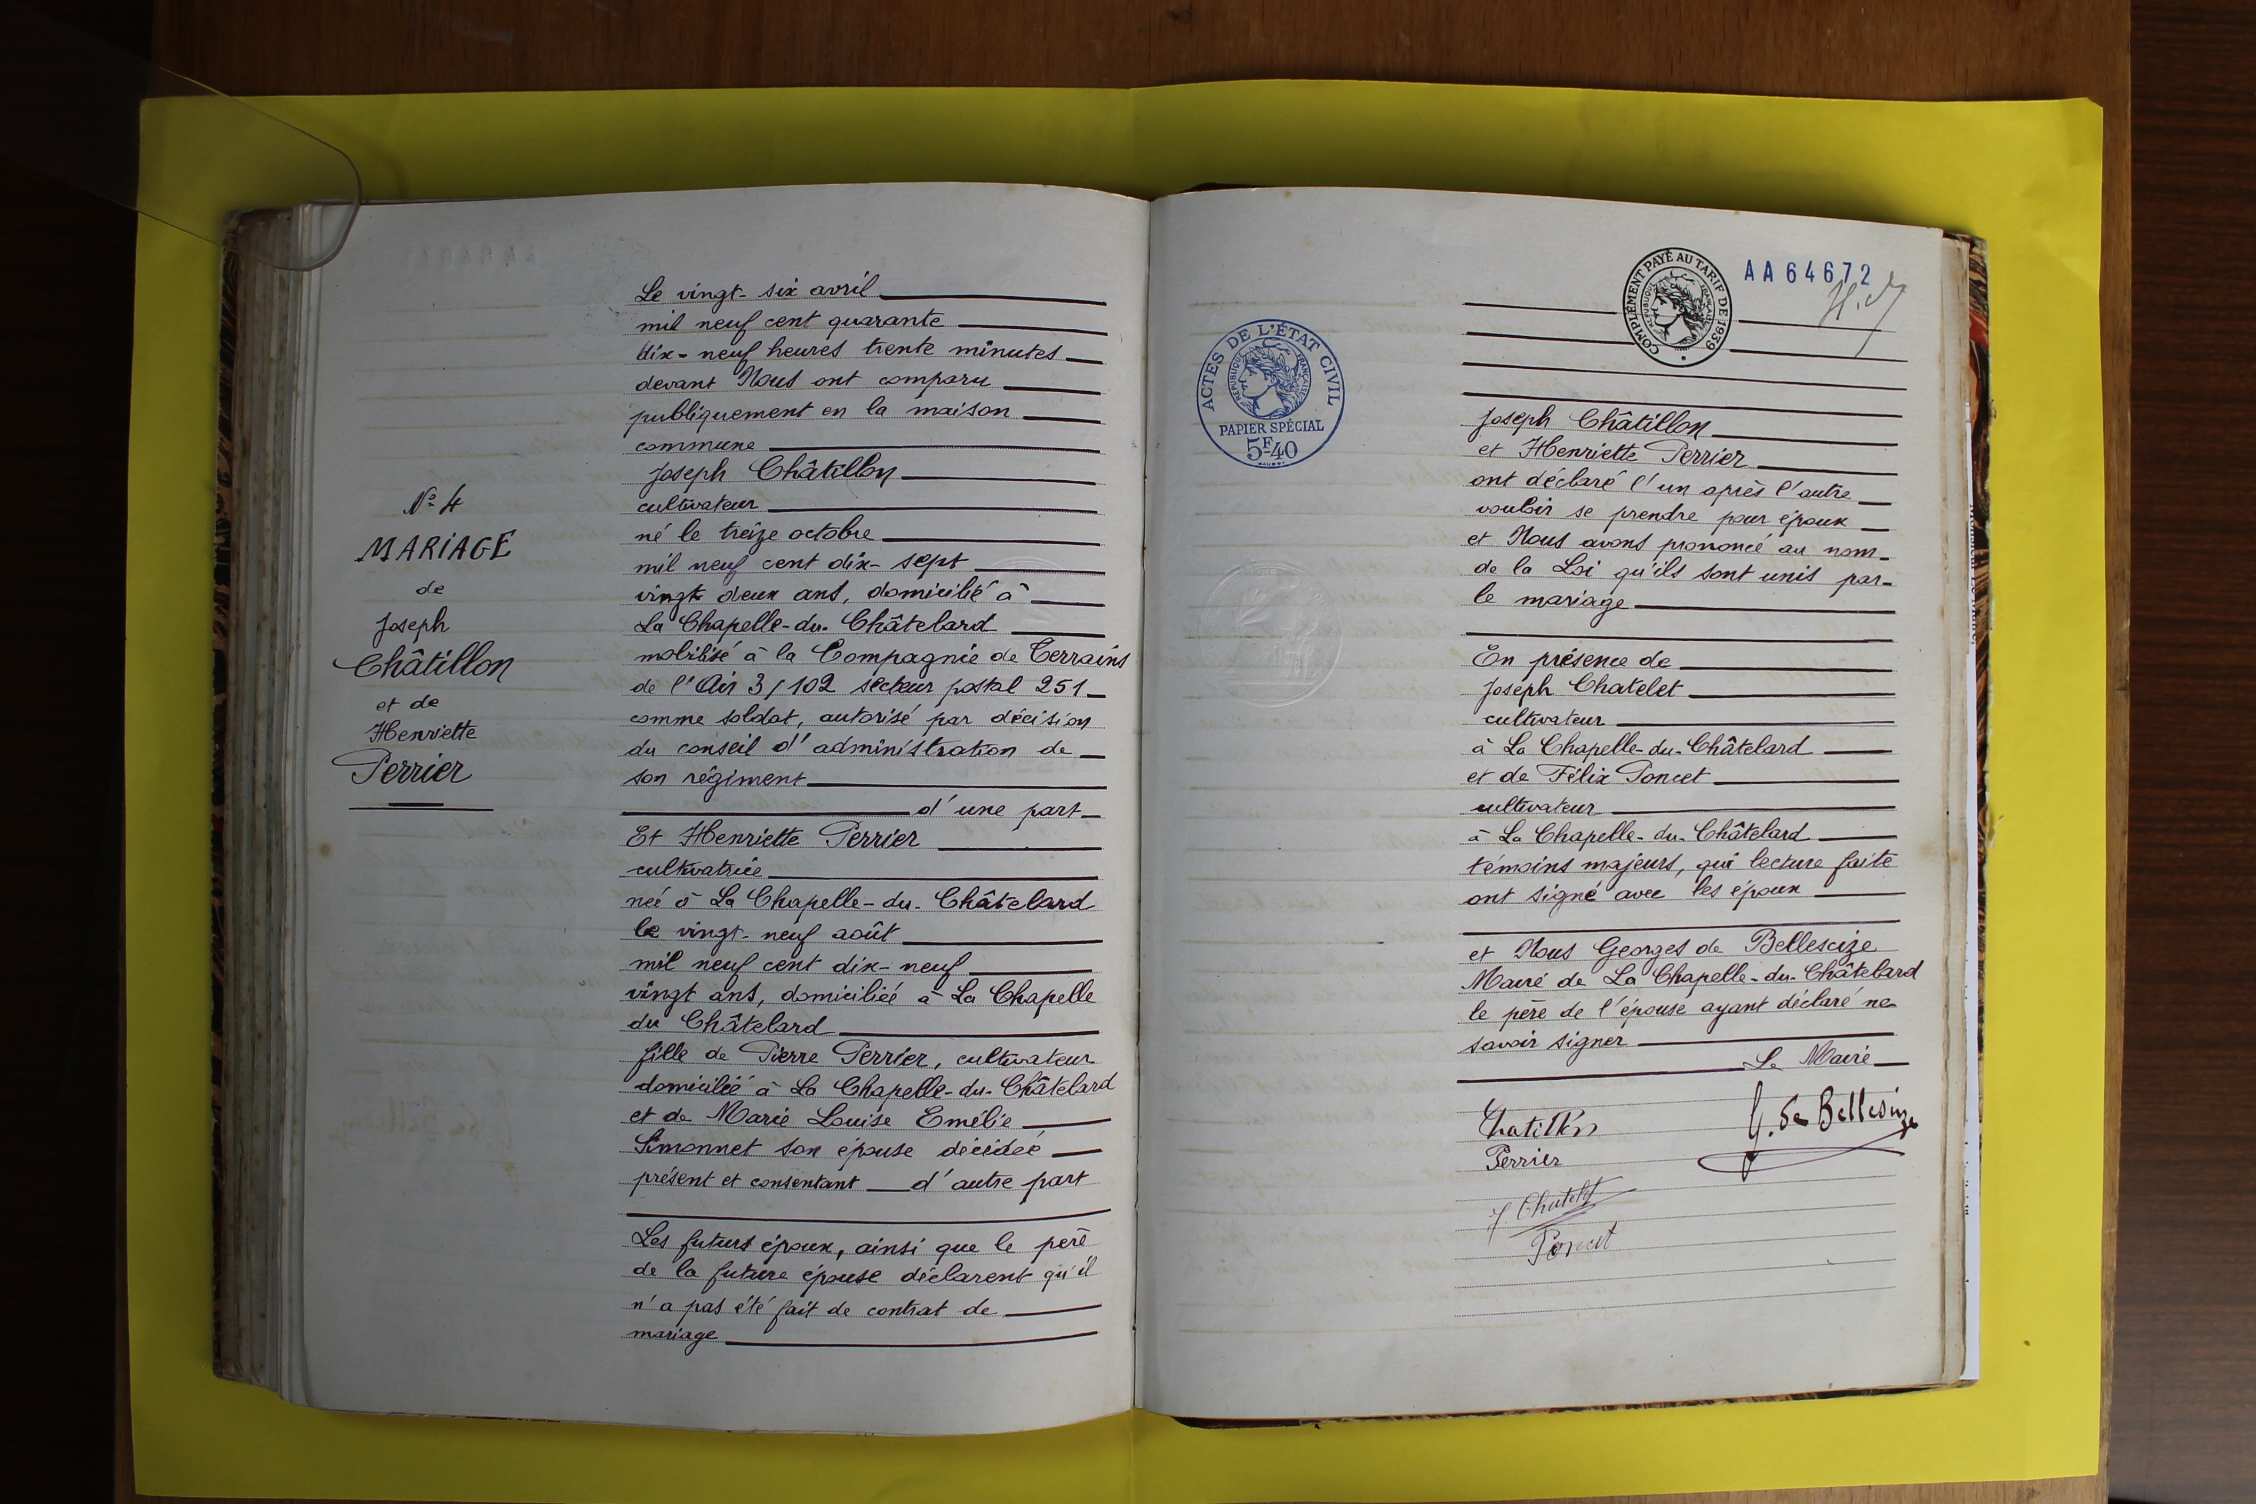 N° 4
MARIAGE
de
Joseph
Châtillon
et de
Henriette
Perrier
Le vingt-six avril
mil neuf cent quarante
dix-neuf heures trente minutes
devant Nous ont comparu
publiquement en la maison
commune
Joseph Châtillon
cultivateur
né le treize octobre
mil neuf cent dix-sept
vingt deux ans, domicilié à
La Chapelle-du-Châtelard
mobilisé à la Compagnie de Terrains
de l'Air 3/102 secteur postal 251
comme soldat, autorisé par décision
du conseil d'administration de
son régiment
d'une part
Et Henriette Perrier
cultivatrice
née à La Chapelle-du-Châtelard
le vingt-neuf août
mil neuf cent dix-neuf
vingt ans, domiciliée à La Chapelle
du Châtelard
fille de Pierre Perrier, cultivateur
domicilié à La Chapelle-du-Châtelard
et de Marie Louise Emélie
Simonnet son épouse décédée
présent et consentant d'autre part
Les futurs époux, ainsi que le père
de la future épouse déclarent qu'il
n'a pas été fait de contrat de
mariage
ACTES DE L'ÉTAT CIVIL
RÉPUBLIQUE FRANÇAISE
PAPIER SPÉCIAL
5F40
COMPLÉMENT PAYÉ AU TARIF DE 1939
RÉPUBLIQUE FRANÇAISE
AA64672
Joseph Châtillon
et Henriette Perrier
ont déclaré l'un après l'autre
vouloir se prendre pour époux
et Nous avons prononcé au nom
de la Loi qu'ils sont unis par
le mariage
En présence de
Joseph Chatelet
cultivateur
à La Chapelle-du-Châtelard
et de Félix Poncet
cultivateur
à La Chapelle-du-Châtelard
témoins majeurs, qui lecture faite
ont signé avec les époux
et Nous Georges de Bellescize
Maire de La Chapelle-du-Châtelard
le père de l'épouse ayant déclaré ne
savoir signer
Le Maire
Chatillon
G. de Bellescize
Perrier
J. Chatelet
Poncet